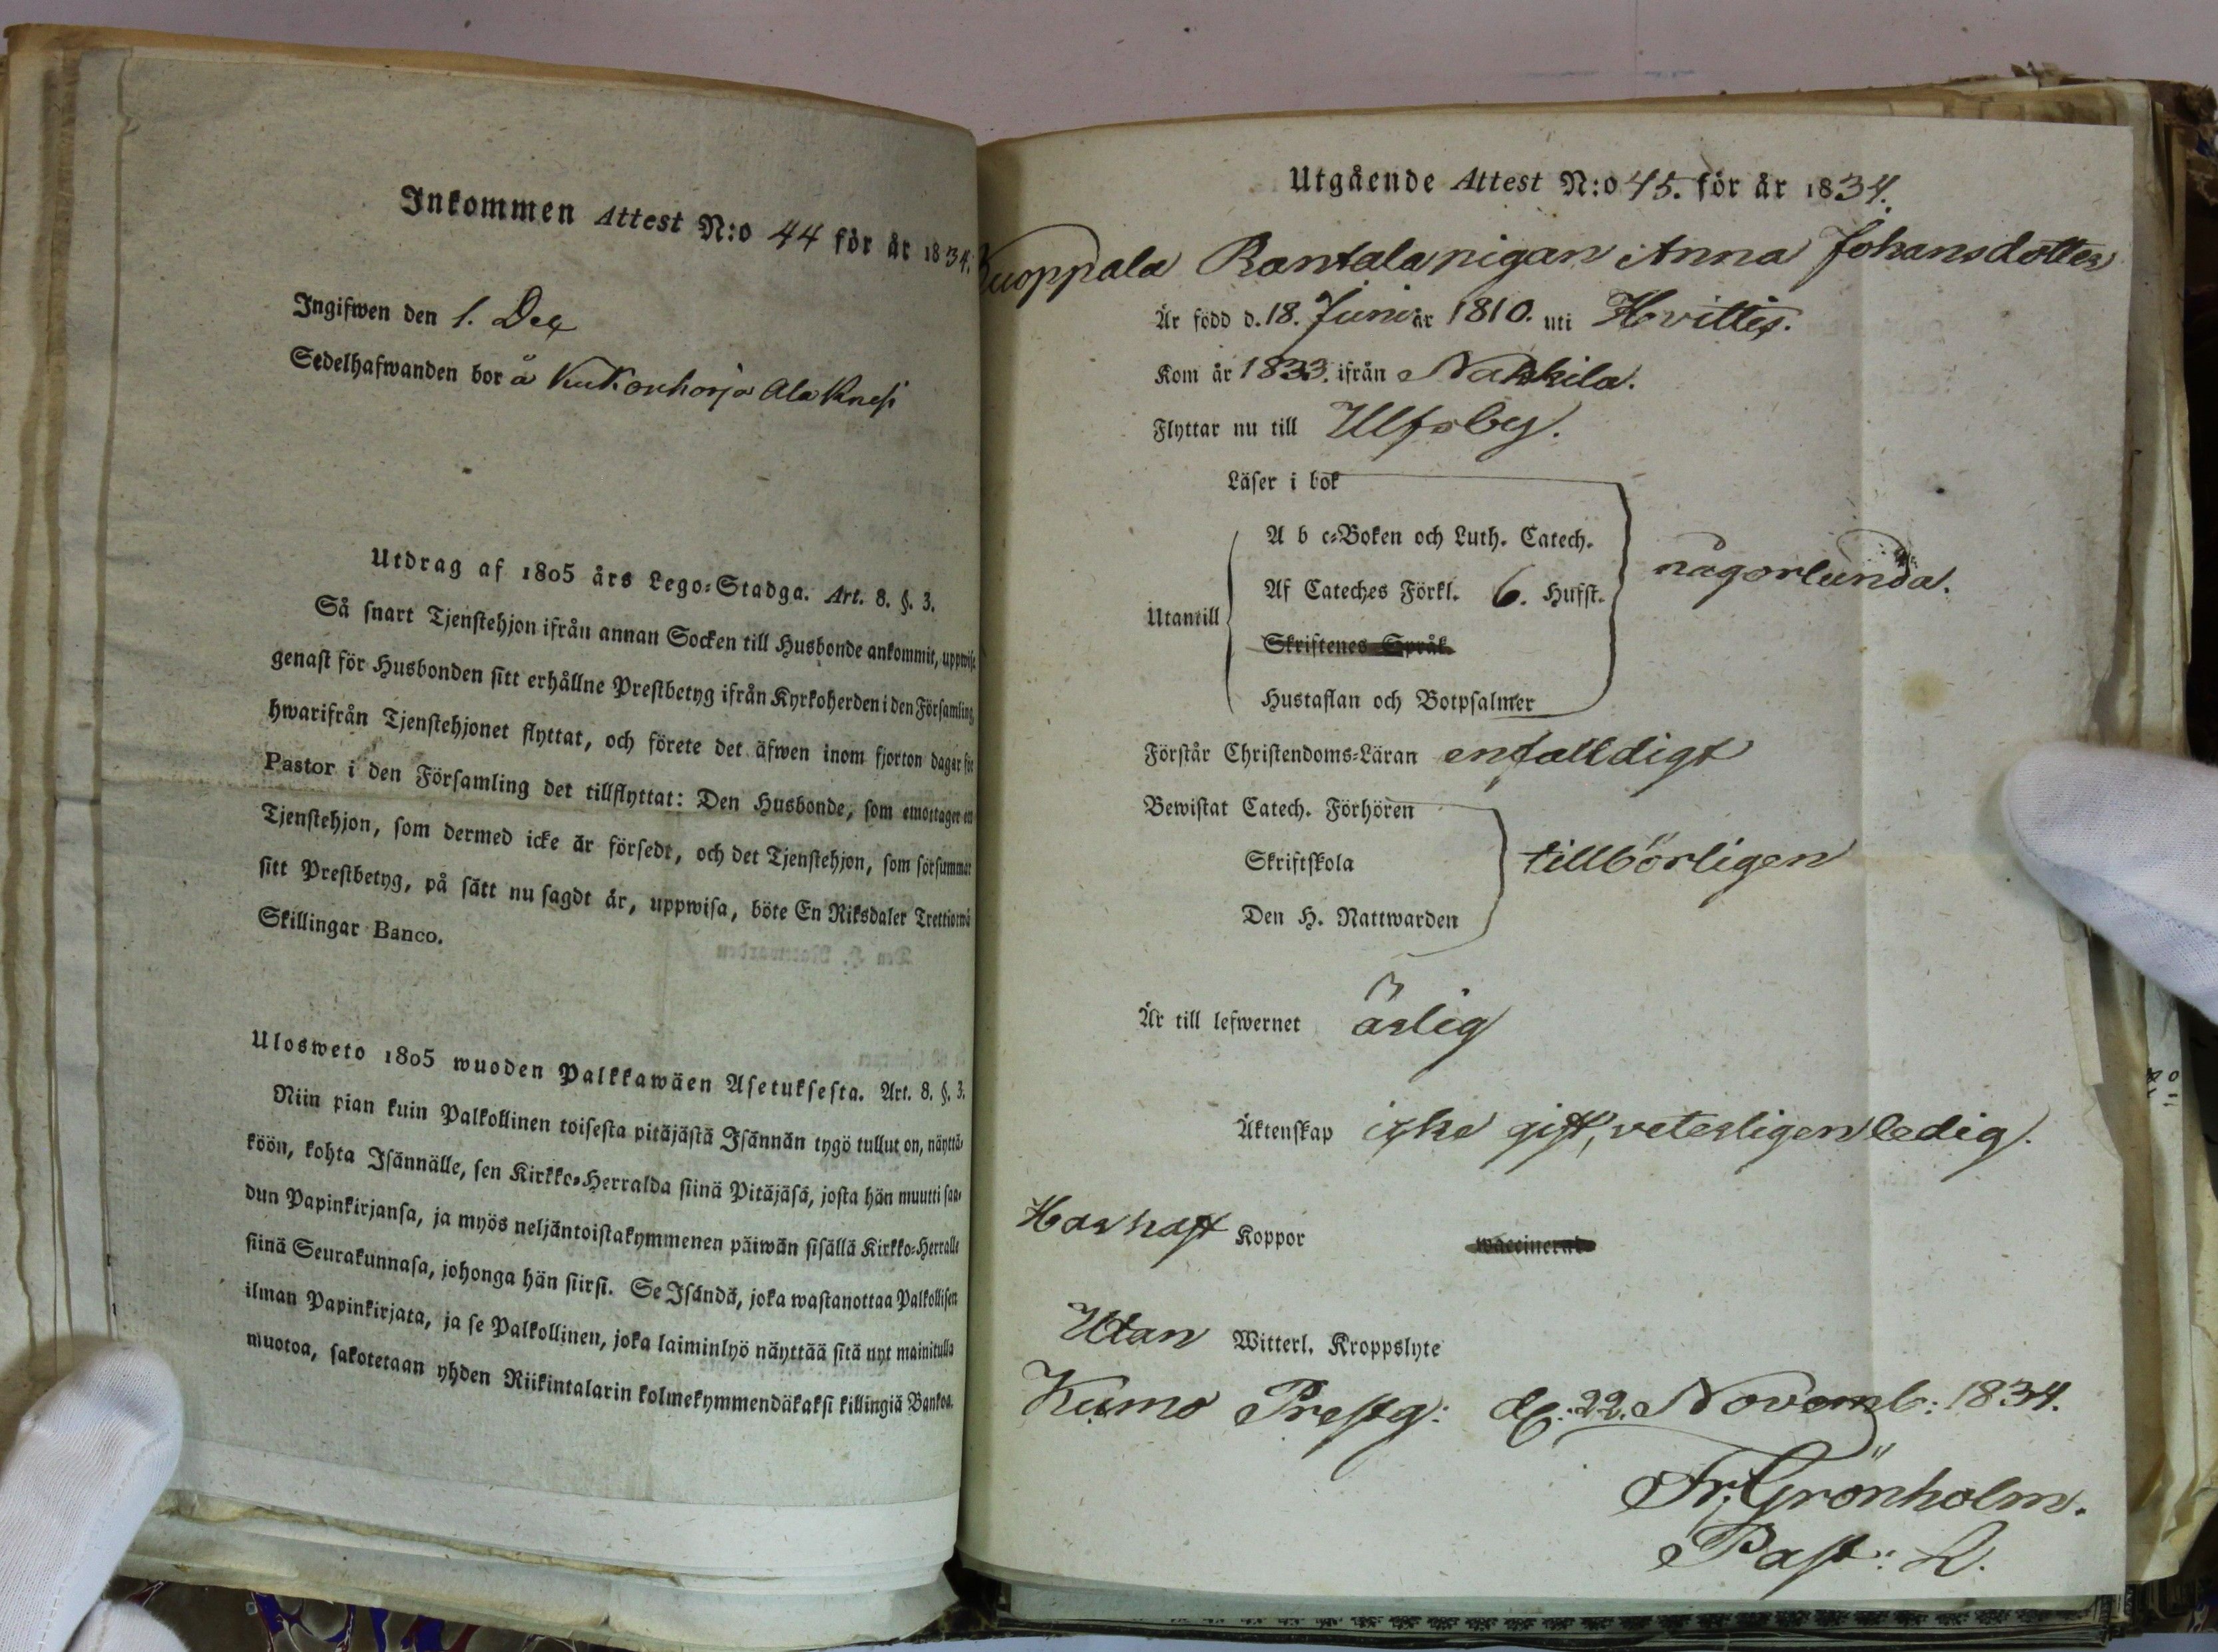 Inkommen Attest N:o 44 för år 1834.
Ingifwen den 1. Dec
Sedelhafwanden bor å Kukonharja Ala Knesi
Utdrag af 1805 års Lego-Stadga. Art. 8. §. 3.
Så snart Tjenstehjon ifrån annan Socken till Husbonde ankommit, uppwise
genast för Husbonden sitt erhållne Prestbetyg ifrån Kyrkoherden i den Församling,
hwarifrån Tjenstehjonet flyttat, och förete det äfwen inom fjorton dagar för
Pastor i den Församling det tillflyttat: Den Husbonde, som emottager en
Tjenstehjon, som dermed icke är försedt, och det Tjenstehjon, som försummar
sitt Prestbetyg, på sätt nu sagdt är, uppwisa, böte En Riksdaler Trettiotwå
Skillingar Banco.
Ulosweto 1805 wuoden Palkkawäen Asetuksesta. Art. 8. §. 3.
Niin pian kuin Palkollinen toisesta pitäjästä Isännän tygö tullut on, näyttä-
köön, kohta Isännälle, sen Kirkko-Herralda siinä Pitäjäsä, josta hän muutti saa-
dun Papinkirjansa, ja myös neljäntoistakymmenen päiwän sisällä Kirkko-Herralle
siinä Seurakunnasa, johonga hän siirsi. Se Isändä, joka wastanottaa Palkollisen
ilman Papinkirjata, ja se Palkollinen, joka laiminlyö näyttää sitä nyt mainitulla
muotoa, sakotetaan yhden Riikintalarin kolmekymmendäkaksi killingiä Bankoa.
Utgående Attest N:o 45. för år 1834.
Kuoppala Rantala pigan Anna Johansdotter
Är född d. 18. Juni år 1810. uti Hvittis.
Kom år 1833. ifrån Nakkila.
Flyttar nu till Ulfsby.
Läser i bok
A b c-Boken och Luth. Catech.
Utantill Af Cateches Förkl. 6. Hufst. någorlunda.
Skriftenes Språk
Hustaflan och Botpsalmer
Förstår Christendoms-Läran enfalldigt
Bewistat Catech. Förhören
Skriftskola tillbörligen
Den H. Nattwarden
Är till lefwernet ärlig
Äktenskap icke gift, veterligen ledig.
Har haft Koppor waccinerat
Utan Witterl. Kroppslyte
Kumo Prestg: d. 22. Novemb: 1834.
Fr: Grönholm.
Past: L.